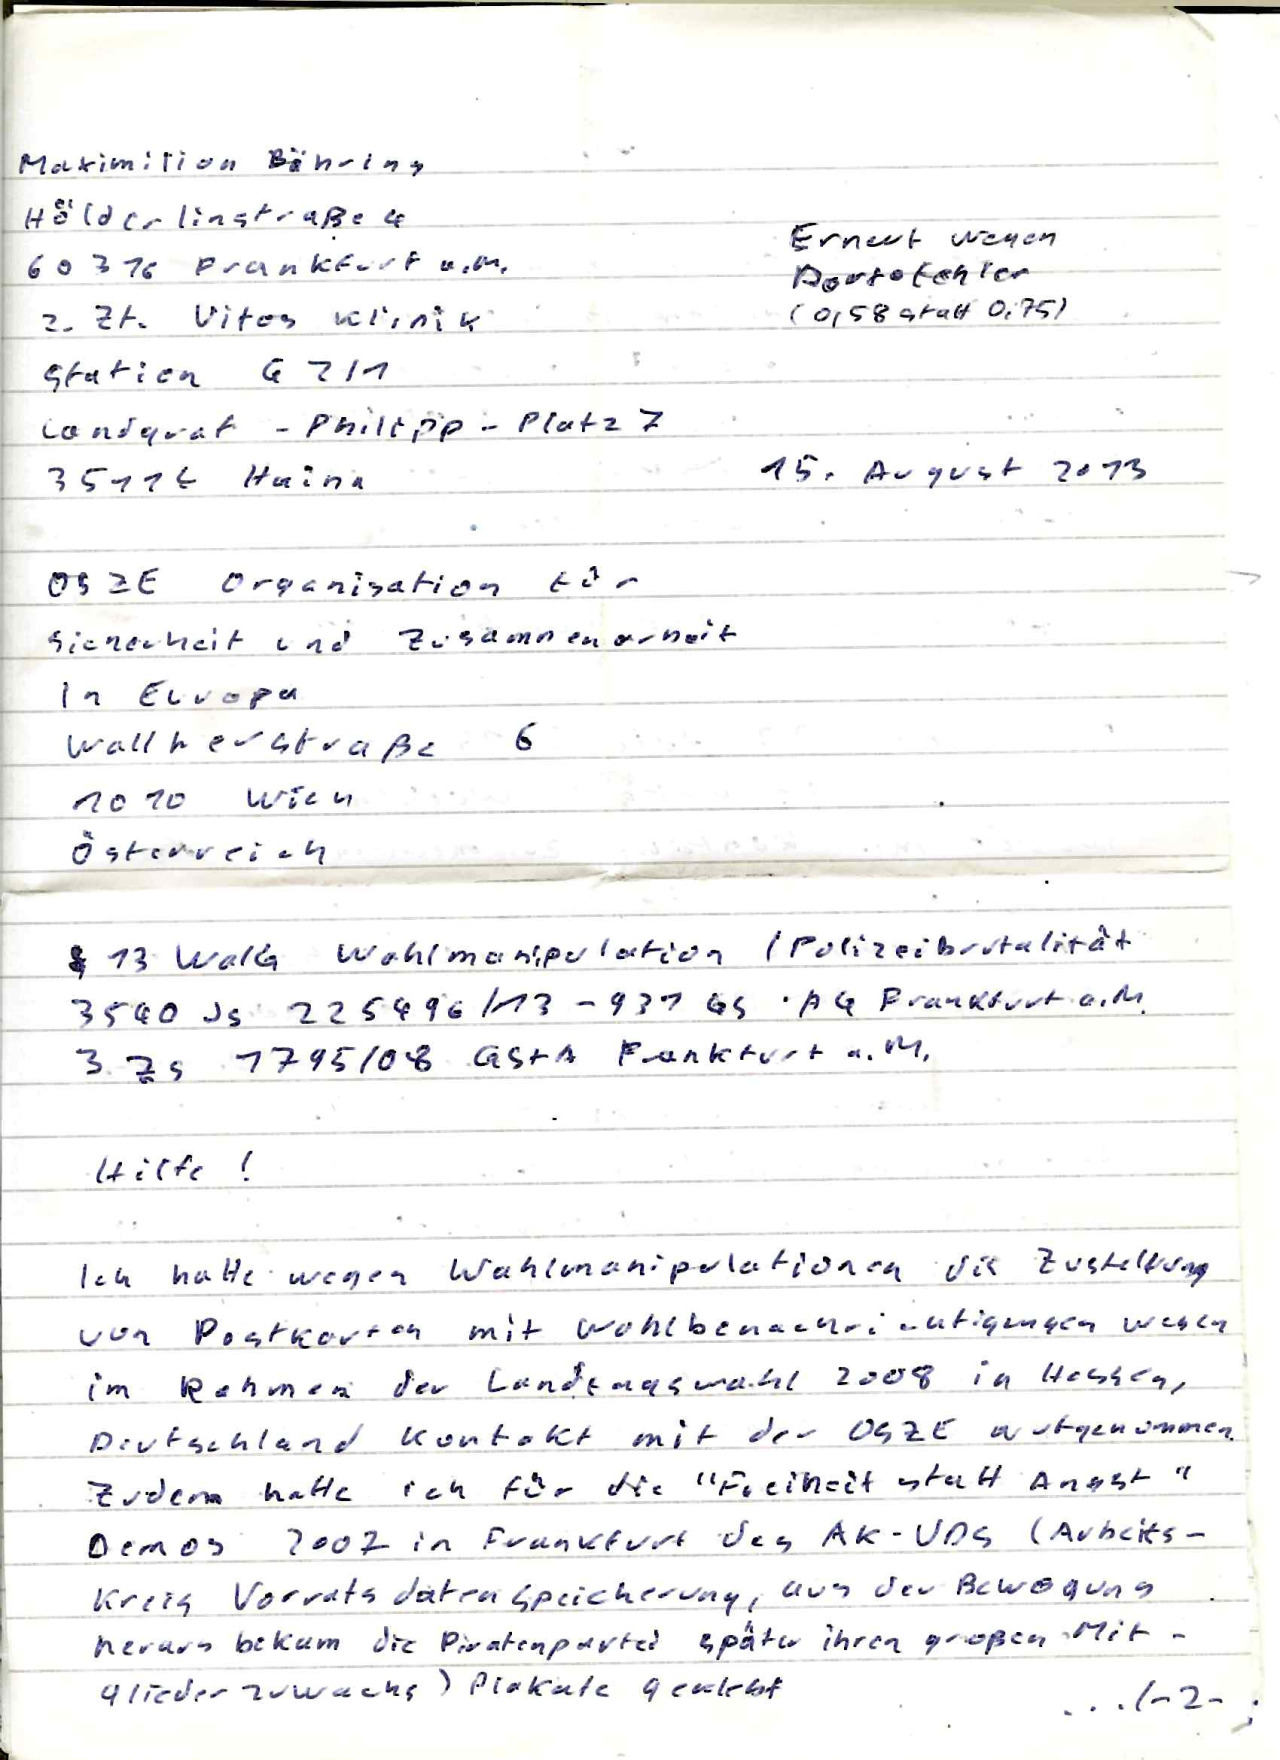 Maximilian Bähring
Hölderlinstraße 4
60316 Frankfurt a.M.
Erneut wegen
Portofehler
(0,58 statt 0,75)
z. Zt. Vitos Klinik
Station G 2/1
Landgraf - Philipp - Platz 7
35114 Haina
15. August 2013
OSZE Organisation für
Sicherheit und Zusammenarbeit
In Europa
Wallnerstraße 6
1010 Wien
Österreich
§ 13 WalG Wahlmanipulation / Polizeibrutalität
3540 Js 225496/13 - 931 Gs · AG Frankfurt a.M.
3 Zs 1795/08 GStA Frankfurt a.M.
Hilfe !
Ich hatte wegen Wahlmanipulationen die Zustellung
von Postkarten mit Wahlbenachrichtigungen wegen
im Rahmen der Landtagswahl 2008 in Hessen,
Deutschland Kontakt mit der OSZE aufgenommen.
Zudem hatte ich für die "Freiheit statt Angst"
Demos 2007 in Frankfurt des AK-VDS (Arbeits-
kreis Vorratsdatenspeicherung, aus der Bewegung
heraus bekam die Piratenpartei später ihren großen Mit-
gliederzuwachs) Plakate geklebt
.../-2-